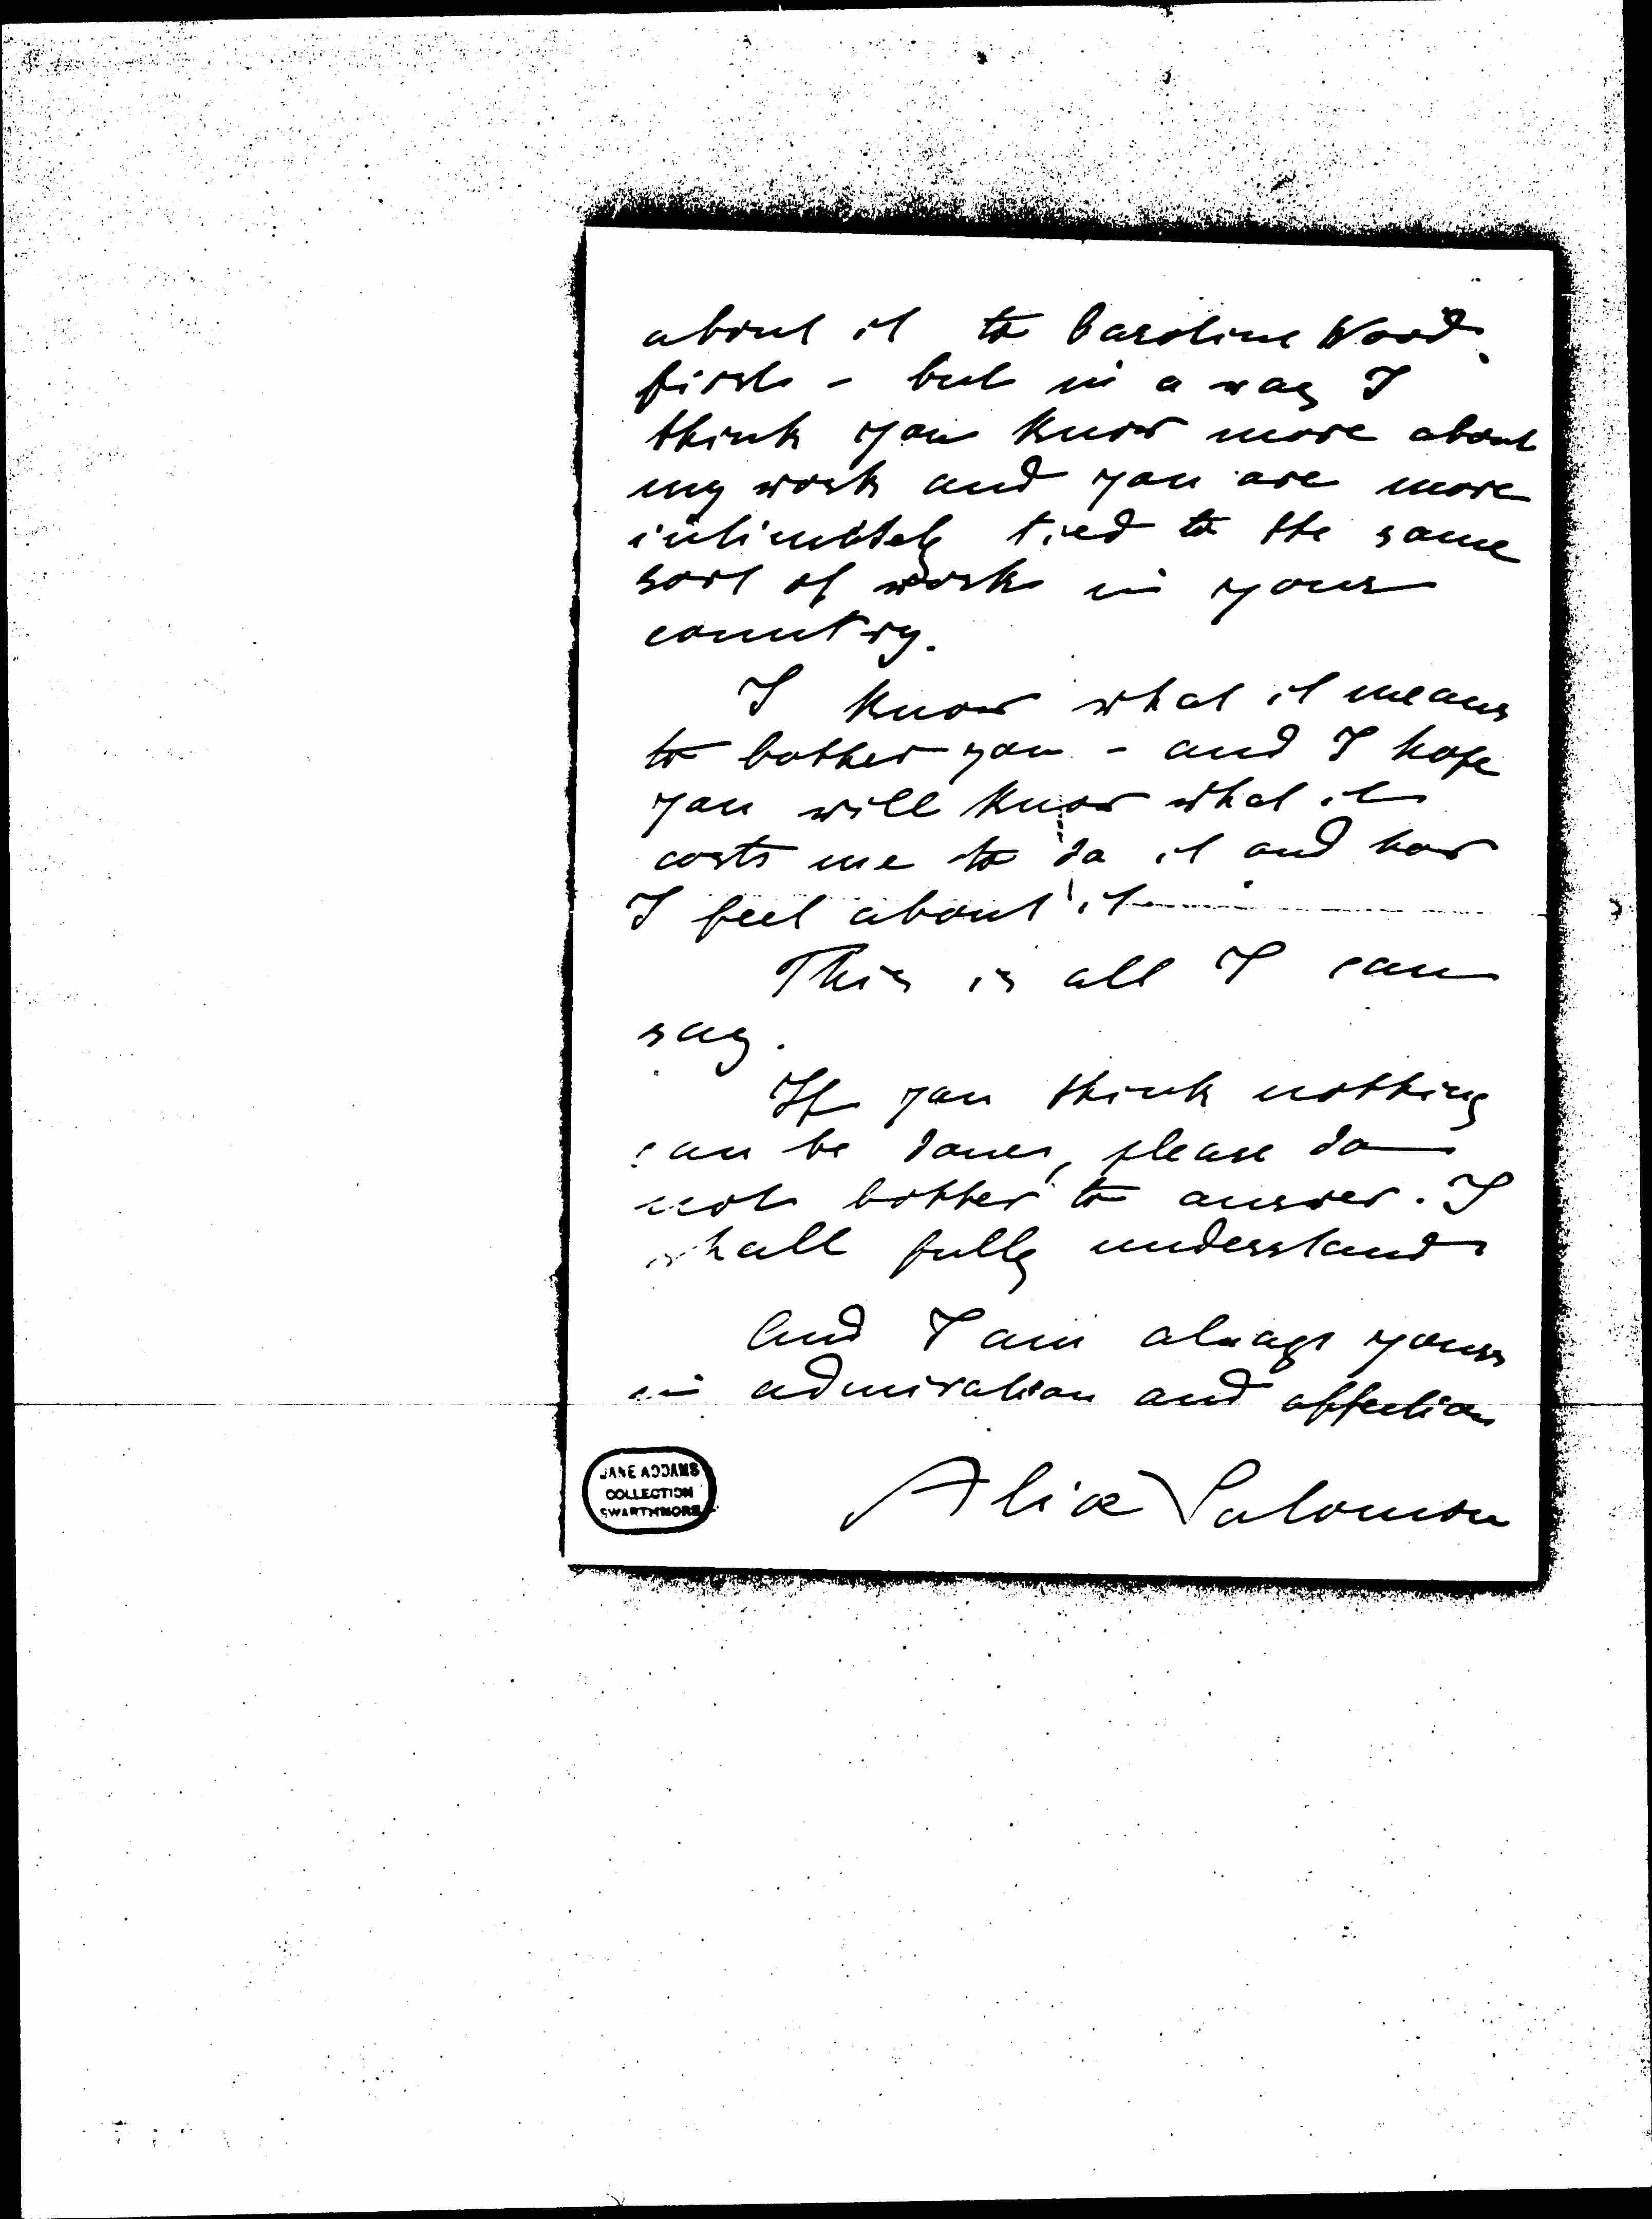 about it to Caroline Wood
first - but in a way I
think you know more about
my work and you are more
intimately tied to the same
sort of work in your
country.
I know what it means
to bother you - and I hope
you will know what it
costs me to do it and how
I feel about it
This is all I can
say.
If you think nothing
can be done, please do
not bother to answer. I
shall fully understand
And I am always yours
in admiration and affection
JANE ADDAMS
COLLECTION
SWARTHMORE
Alice Salomon